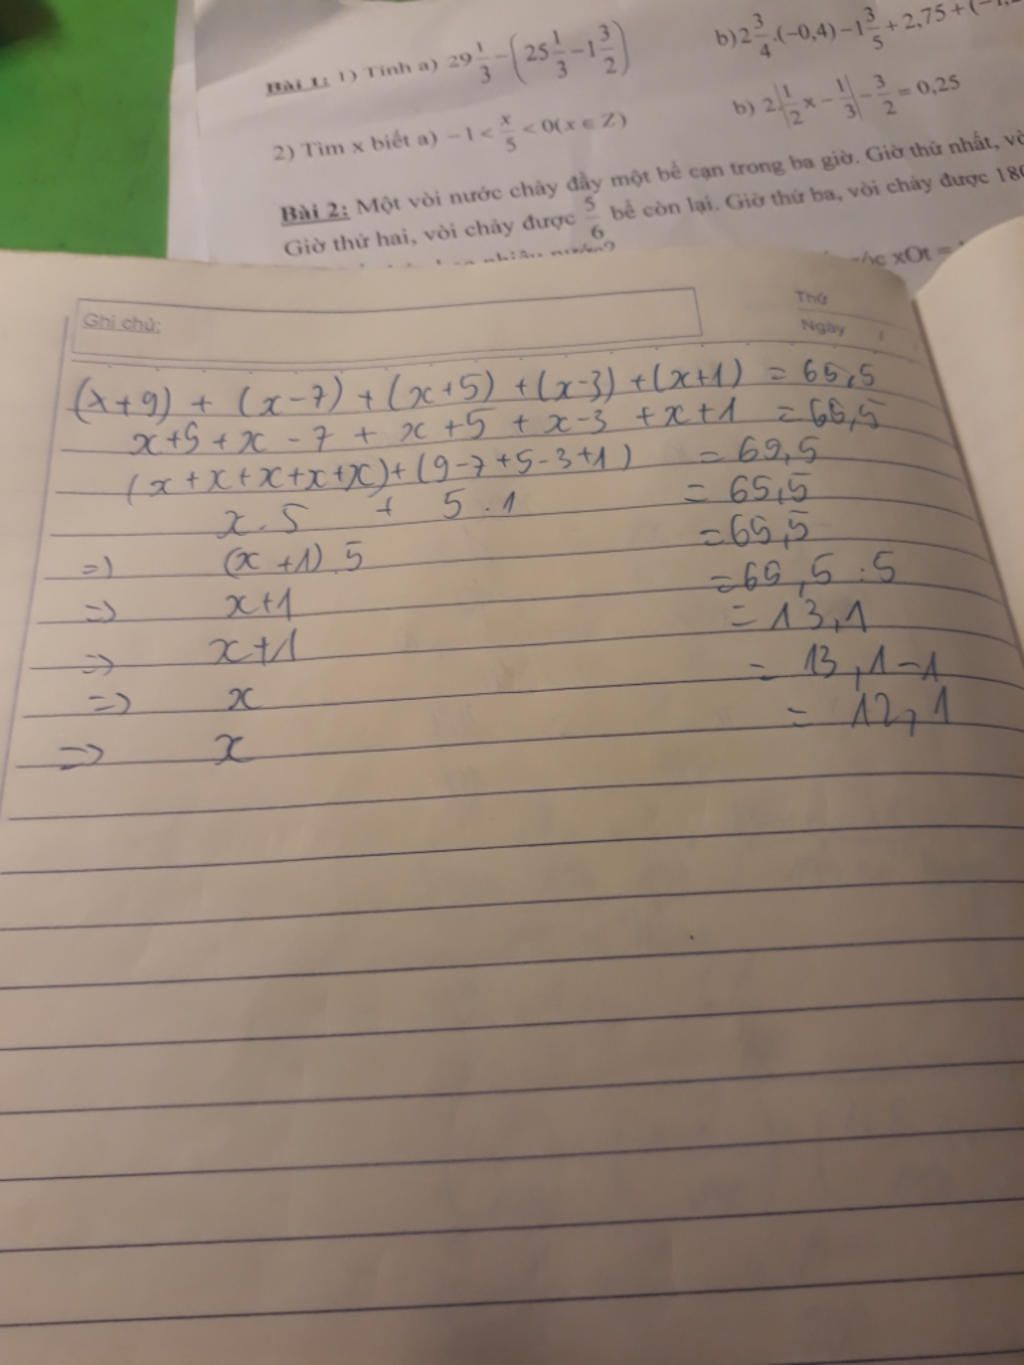 Bài 1: 1) Tính a) 29 1/3 − (25 1/3 − 1 3/2)
b) 2 3/4 .(−0,4) − 1 3/5 + 2,75 + (−1,
2) Tìm x biết a) −1 < x/5 < 0(x ∈ Z)
b) 2.|1/2 x − 1/3| − 3/2 = 0,25
Bài 2: Một vòi nước chảy đầy một bể cạn trong ba giờ. Giờ thứ nhất,
Giờ thứ hai, vòi chảy được 5/6 bể còn lại. Giờ thứ ba, vòi chảy được 180
nhiêu nước?
xOt =
Ghi chú:
Thứ
Ngày /
(x+9) + (x-7) + (x+5) + (x-3) + (x+1) = 65,5
x+9 + x - 7 + x+5 + x-3 + x+1 = 65,5
(x+x+x+x+x)+(9-7+5-3+1) = 65,5
x.5 + 5.1 = 65,5
=> (x+1).5 = 65,5
=> x+1 = 65,5 : 5
=> x+1 = 13,1
=> x = 13,1-1
=> x = 12,1